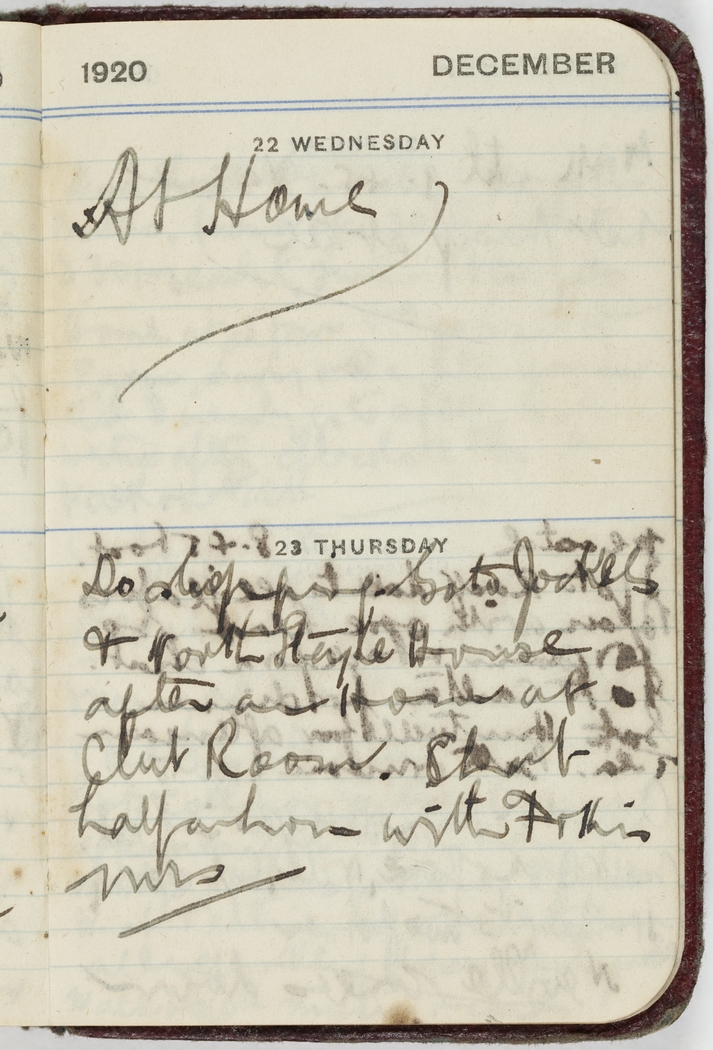 1920 DECEMBER
22 WEDNESDAY
At Home
23 THURSDAY
Do shopping. Go to
& North Staple House
after an Hour at
Club Room. Spent
half an hour with
Mrs